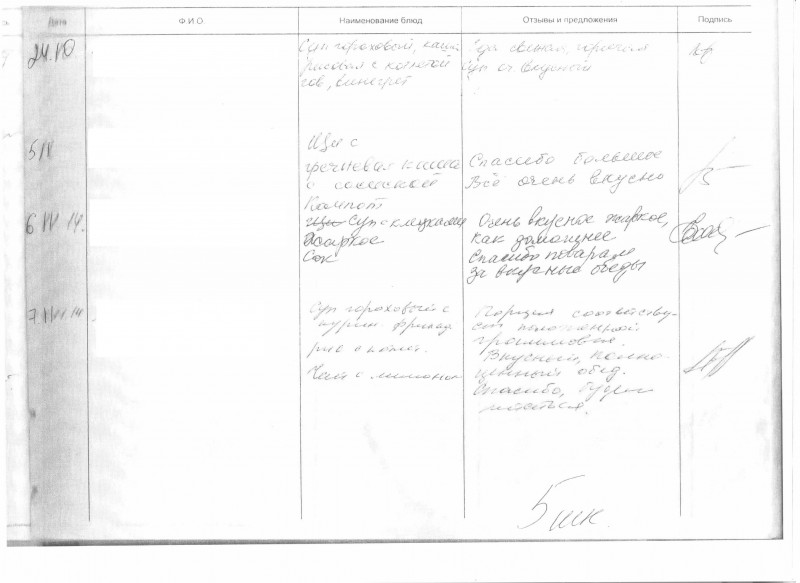 Дата Ф.И.О. Наименование блюд Отзывы и предложения Подпись
24.10
Суп гороховый, каша
рисовая с котлетой
винегрет
Суп вкусный
Щи с
гречневая каша
с сосиской
Компот
Спасибо большое
Всё очень вкусно
Суп с клецками
Жаркое
Сок
Очень вкусное жаркое,
как домашнее
Спасибо поварам
за вкусные обеды
Суп гороховый с
рис с
Чай с лимоном
Порция соответству-
ет положенной
граммовке.
Вкусный, полно-
ценный обед.
Спасибо, будем
питаться.
5 шк.